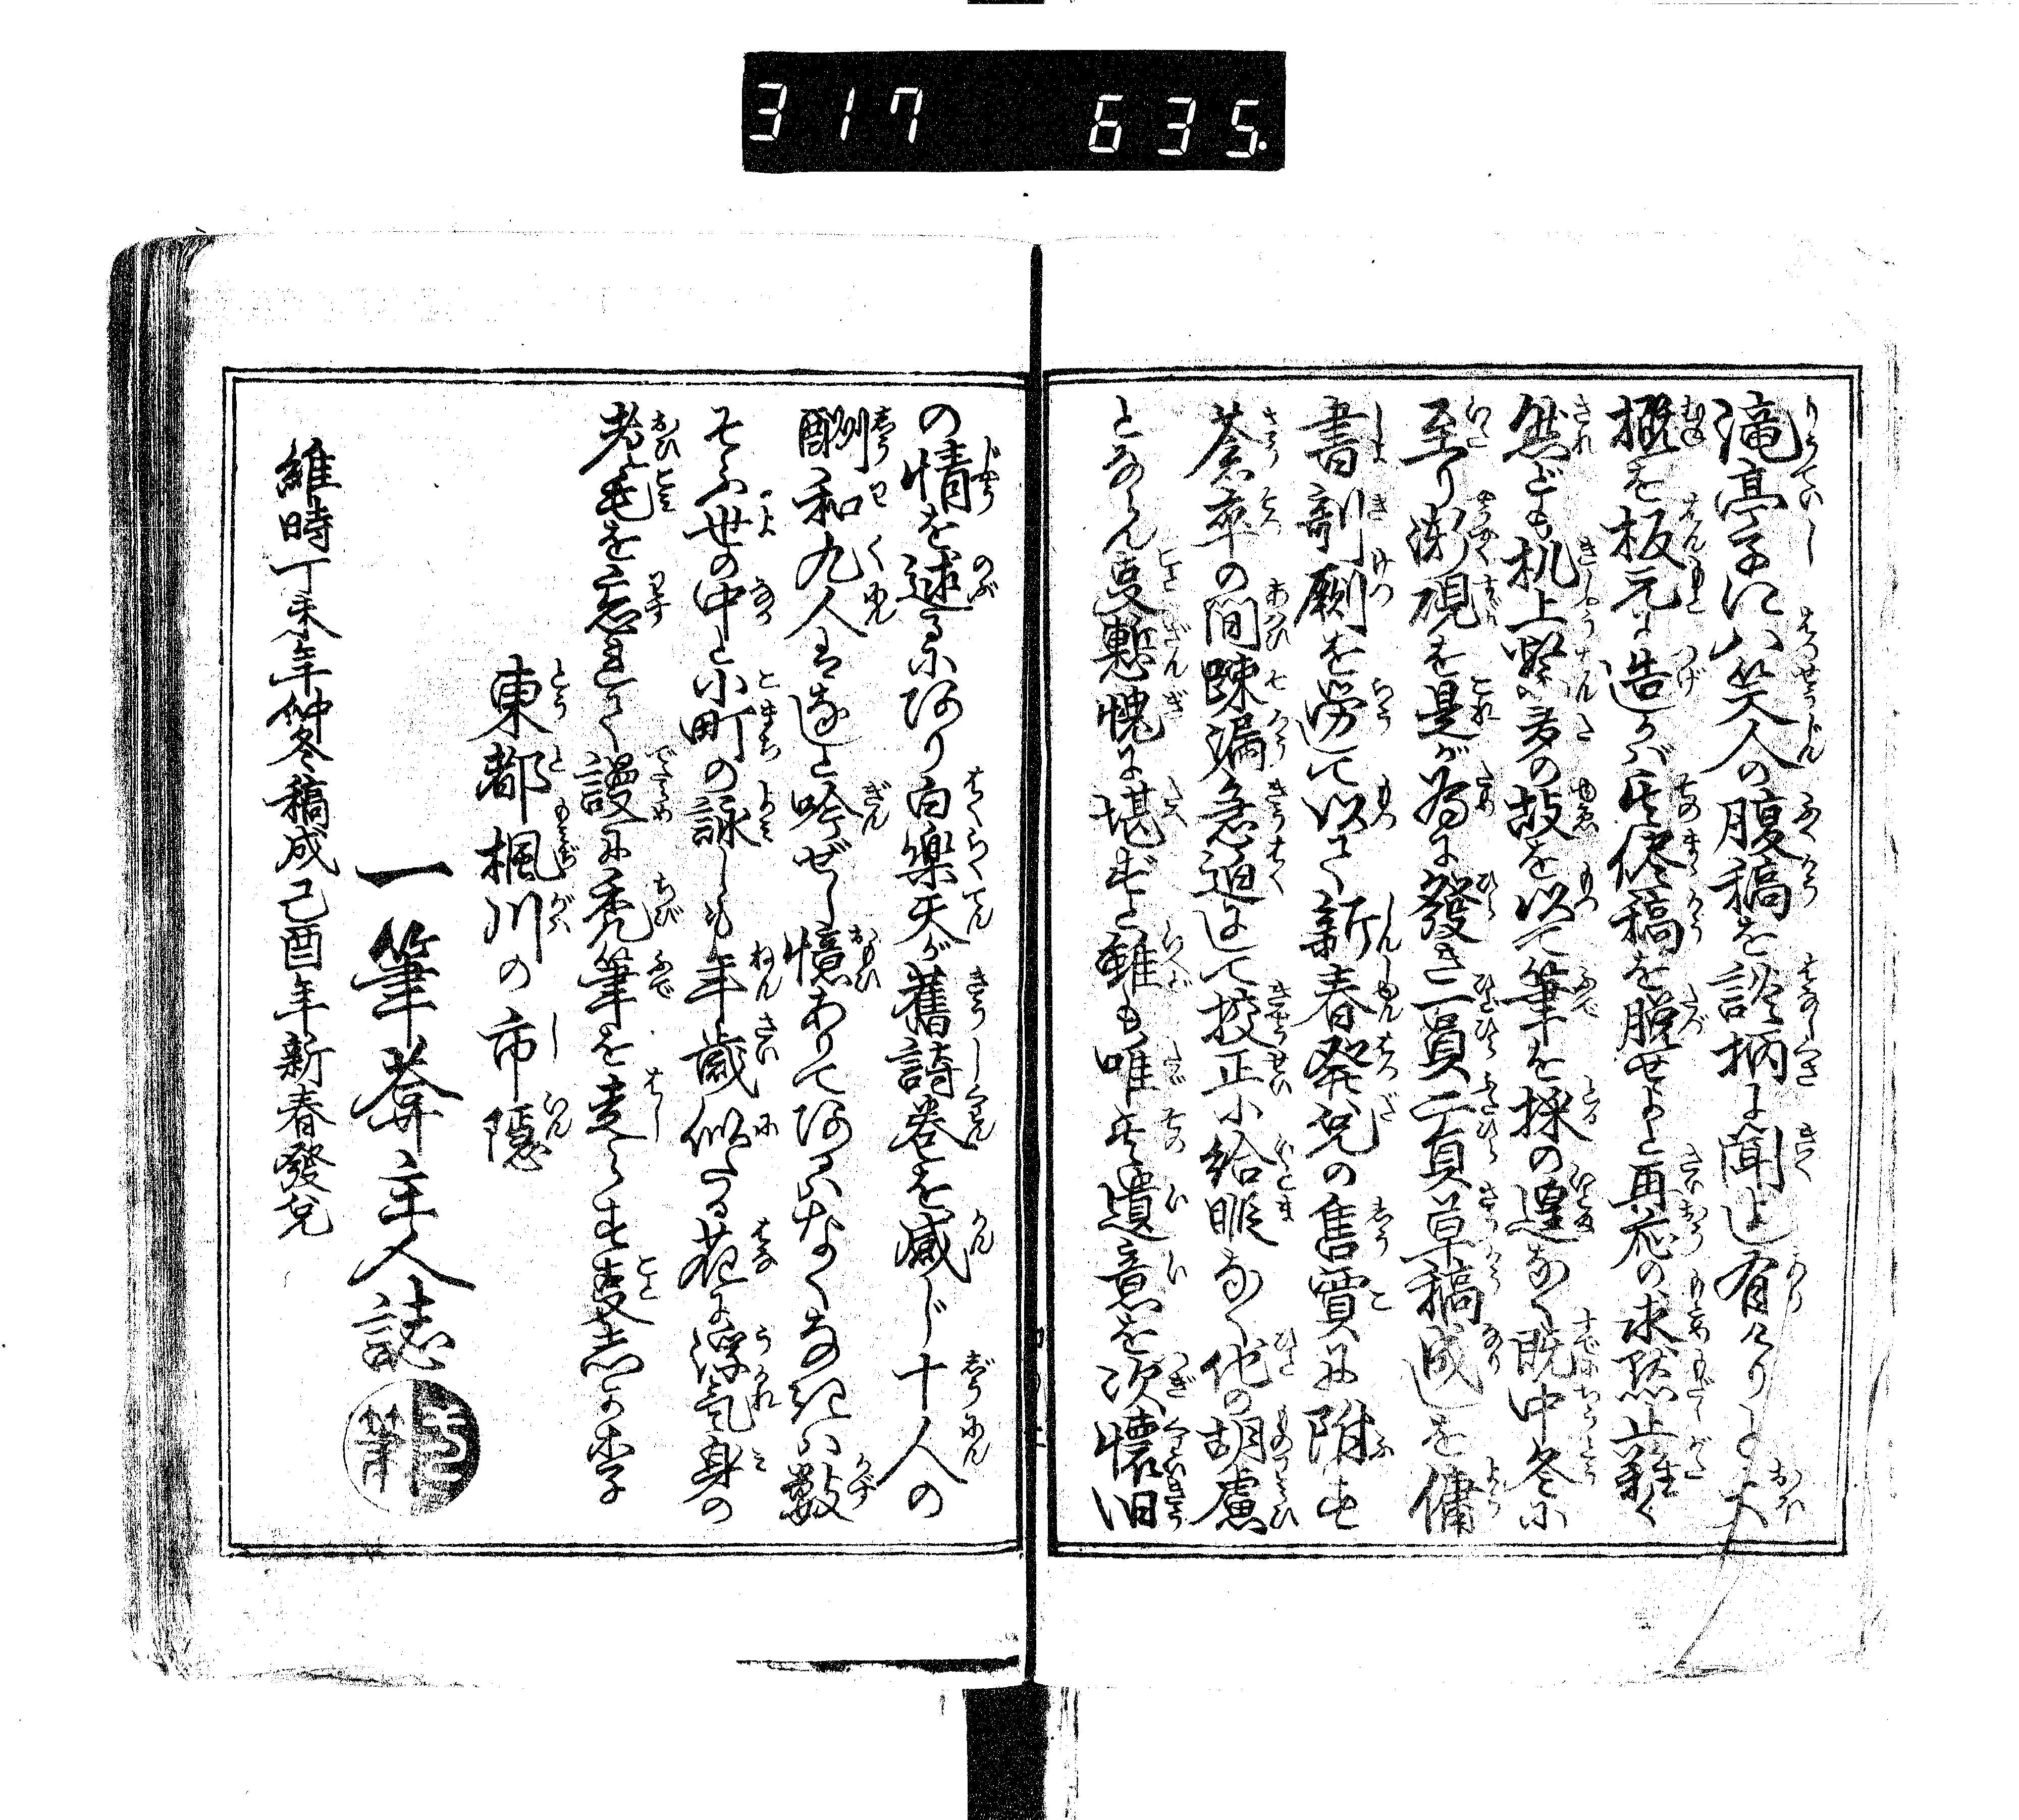 317 635.
滝亭子に八笑人の腹稿を談柄に聞しに有けりと大
概を板元に造れば其侭稿を脱せよと再応の求黙止難く
然ども机上繁多の故を以て筆を採の遑なく既中冬に
至り漸硯を是が為に發き一員二頁草稿成しを傭
書剞劂を労して以て新春発兌の售賈に附す
蒼卒の間疎漏急迫にして挍正に給暇なく他の胡慮
とならん事慙愧に堪ずと雖も唯其遺意を次懐旧
の情を述るにあり白樂天が舊詩巻を感じ十人の
酬和九人は逝と吟ぜし憶ありてあるはなくなきは數
そふ世の中と小町の詠しも年歳似たる花に浮気身の
老毛を忘れて謾に禿筆を走らす事志かり
東都楓川の市隠
一筆葊主人誌
一筆
維時丁未年仲冬稿成己酉年新春發兌